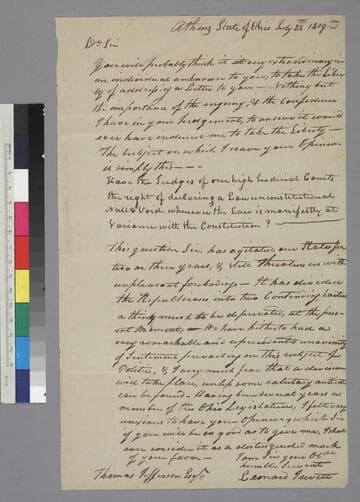 Athens State of Ohio July 28th 1809
Dr Sir
You will probably think it very extraordinary in
an individual unknown to you, to take the liber
ty of addressing a Letter to you — Nothing but
the importance of the enquiry, & the Confidence
I have in your Judgement to answer it would
ever have induced me to take the Liberty —
The subject on which I crave your Opinion
is simply this — — —
Have the Judges of our high Judicial Courts
the right of declaring a Law unconstitutional
Null & Void, whenever the Law is manifestly at
Variance with the Constitution? —
This question Sir, has agitated our State for
two or three years, & still threatens us with
unpleasant forebodings — It has divided
the Republicans into two Contending parties
a thing much to be depreciated, at the pres
ent Moment, — We have hitherto had a
very remarkable and unprecedented unanimity
of Sentiment prevailing on this subject of
Politics, & I very much fear that a division
will take place, unless some salutary antidote
can be found — Having been several years a
member of the Ohio Legislature, I felt very
anxious to have your Opinion, which Sir
if you will be so good as to give me, I shall
ever consider it as a distinguished mark
of your favor —
I am Sir your Obdt
humble Servant
Thomas Jefferson Esqr
Leonard Jewett